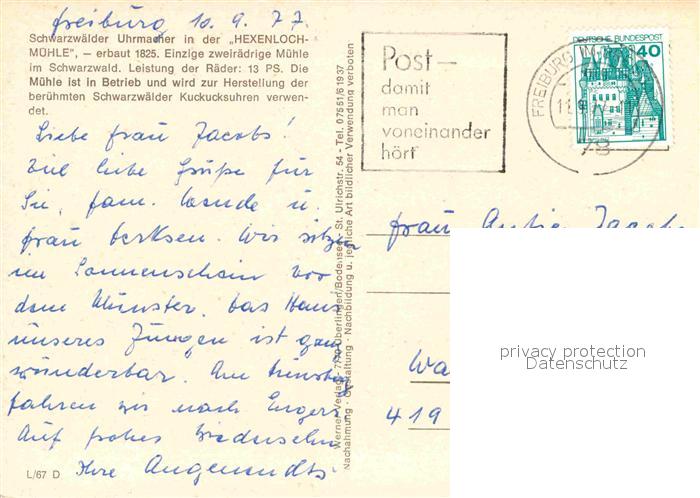 Freiburg 10. 9. 77.
Schwarzwälder Uhrmacher in der „HEXENLOCH-
MÜHLE", — erbaut 1825. Einzige zweirädrige Mühle
im Schwarzwald. Leistung der Räder: 13 PS. Die
Mühle ist in Betrieb und wird zur Herstellung der
berühmten Schwarzwälder Kuckucksuhren verwen-
det.
Liebe Frau Jacobs!
Viel liebe Grüße für
Sie, Fam. Wende u.
Frau Berksen. Wir sitzen
im Sonnenschein vor
dem Münster. Das Haus
unseres Jungen ist ganz
wunderbar. Am Dienstag
fahren wir nach Engers.
Auf frohes Wiedersehn
Ihre Angenendts
L/67 D
Werner-Verlag - 7770 Überlingen/Bodensee - St. Ulrichstr. 54 - Tel. 07551/61937
Nachahmung - Gestaltung - Nachbildung u. jegliche Art bildlicher Verwendung verboten
Post —
damit
man
voneinander
hört
FREIBURG
78
DEUTSCHE BUNDESPOST
40
Frau Antje Jacobs
Wa
419
privacy protection
Datenschutz